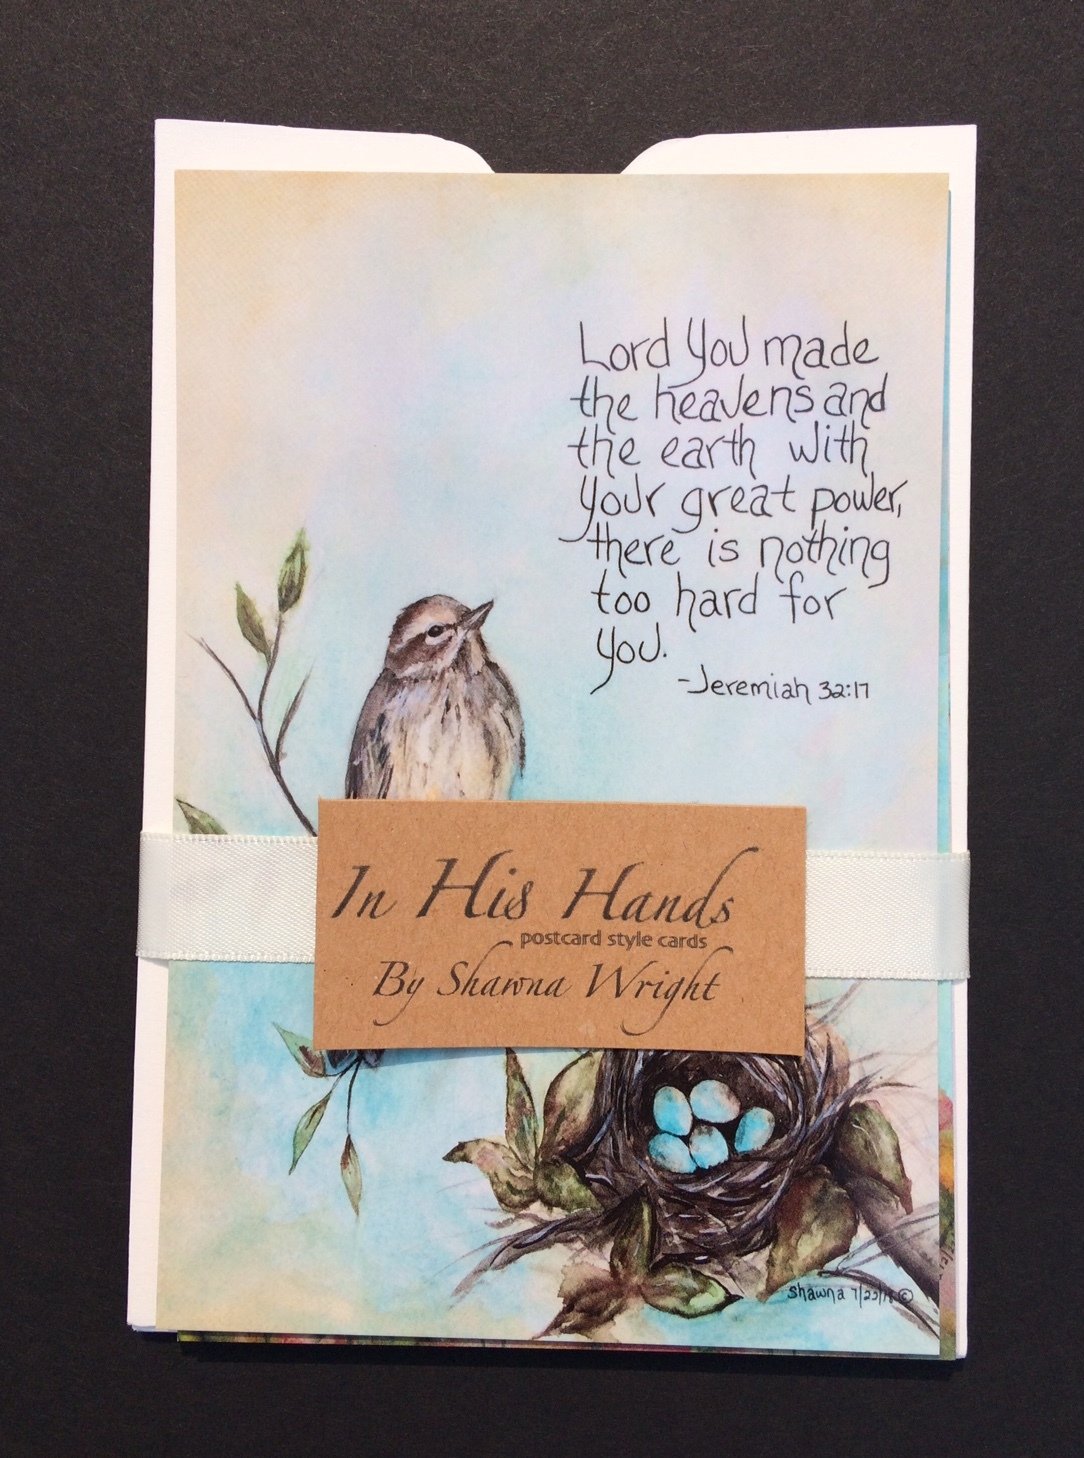 Lord You made
the heavens and
the earth with
your great power,
there is nothing
too hard for
you.
-Jeremiah 32:17
In His Hands
postcard style cards
By Shawna Wright
Shawna ©